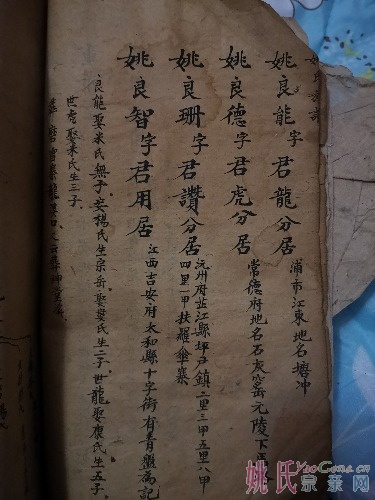 姚良能字君龍分居
浦市江東地名塘冲
姚良德字君虎分居
常德府地名石灰窑元陵下
姚良珊字君讚分居
沅州府芷江縣坪子鎮二里三甲五里八甲
四里一甲扶羅傘寨
姚良智字君用居
江西吉安府太和縣十字街有青盤為記
良能娶米氏無子安楊氏生宗奇娶娄氏生二子世龍娶康氏生五子
世虎娶米氏生三子
姚氏宗亲网
YaoGens.cn